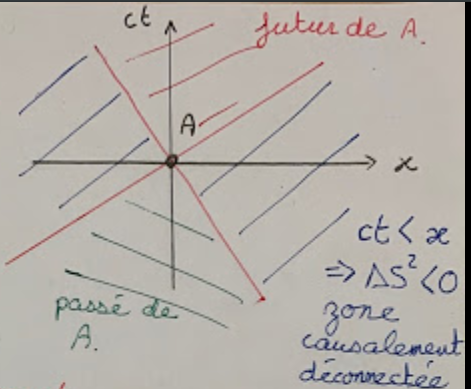 ct
futur de A.
A
x
ct < x
⇒ ΔS² < 0
zone
causalement
déconnectée
passé de
A.